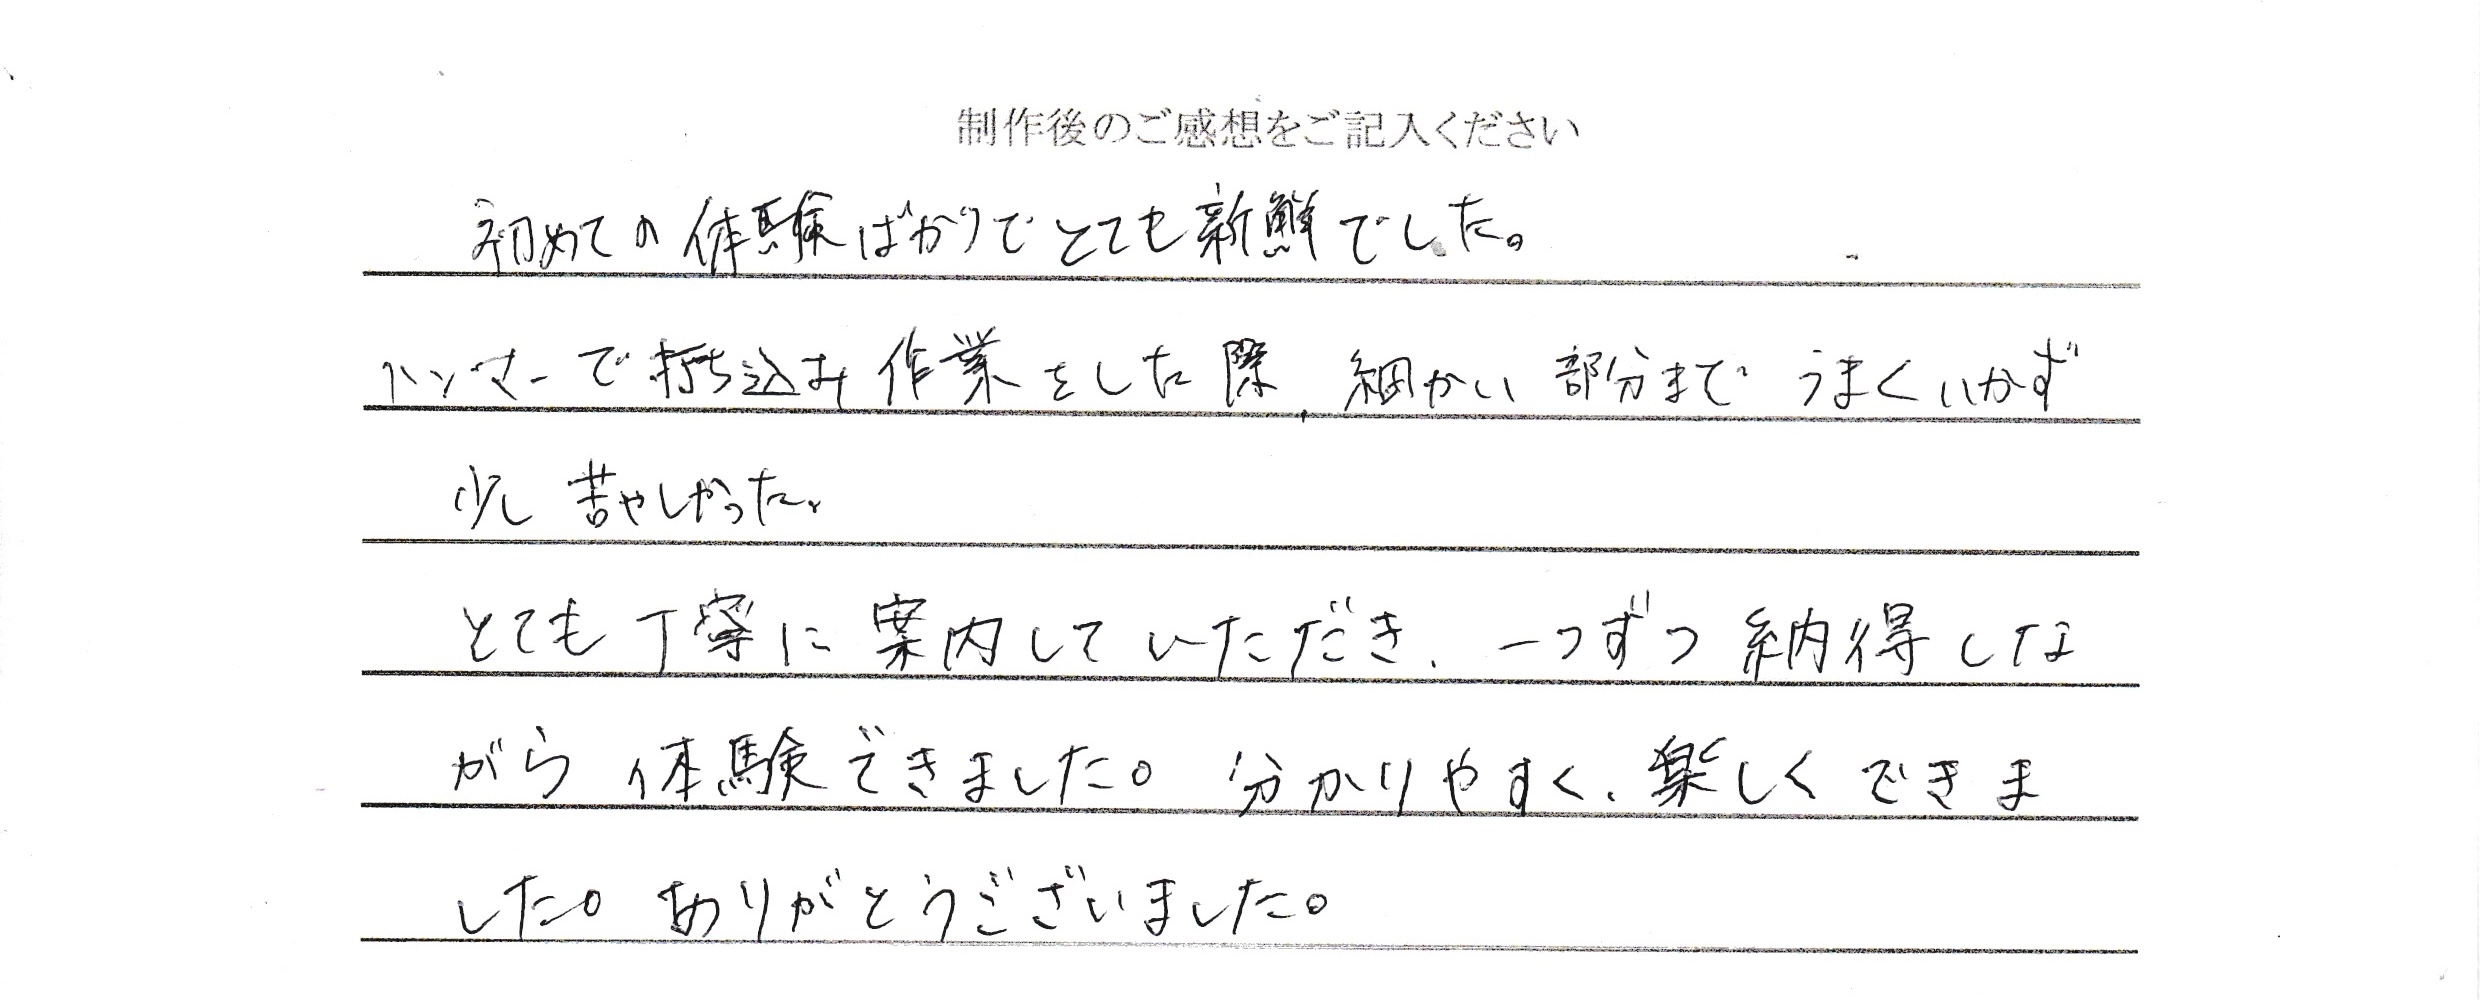 制作後のご感想をご記入ください
初めての体験ばかりでとても新鮮でした。
ハンマーで打ち込み作業をした際、細かい部分までうまくいかず
少し苦やしかった。
とても丁寧に案内していただき、一つずつ納得しな
がら体験できました。分かりやすく、楽しくできま
した。ありがとうございました。